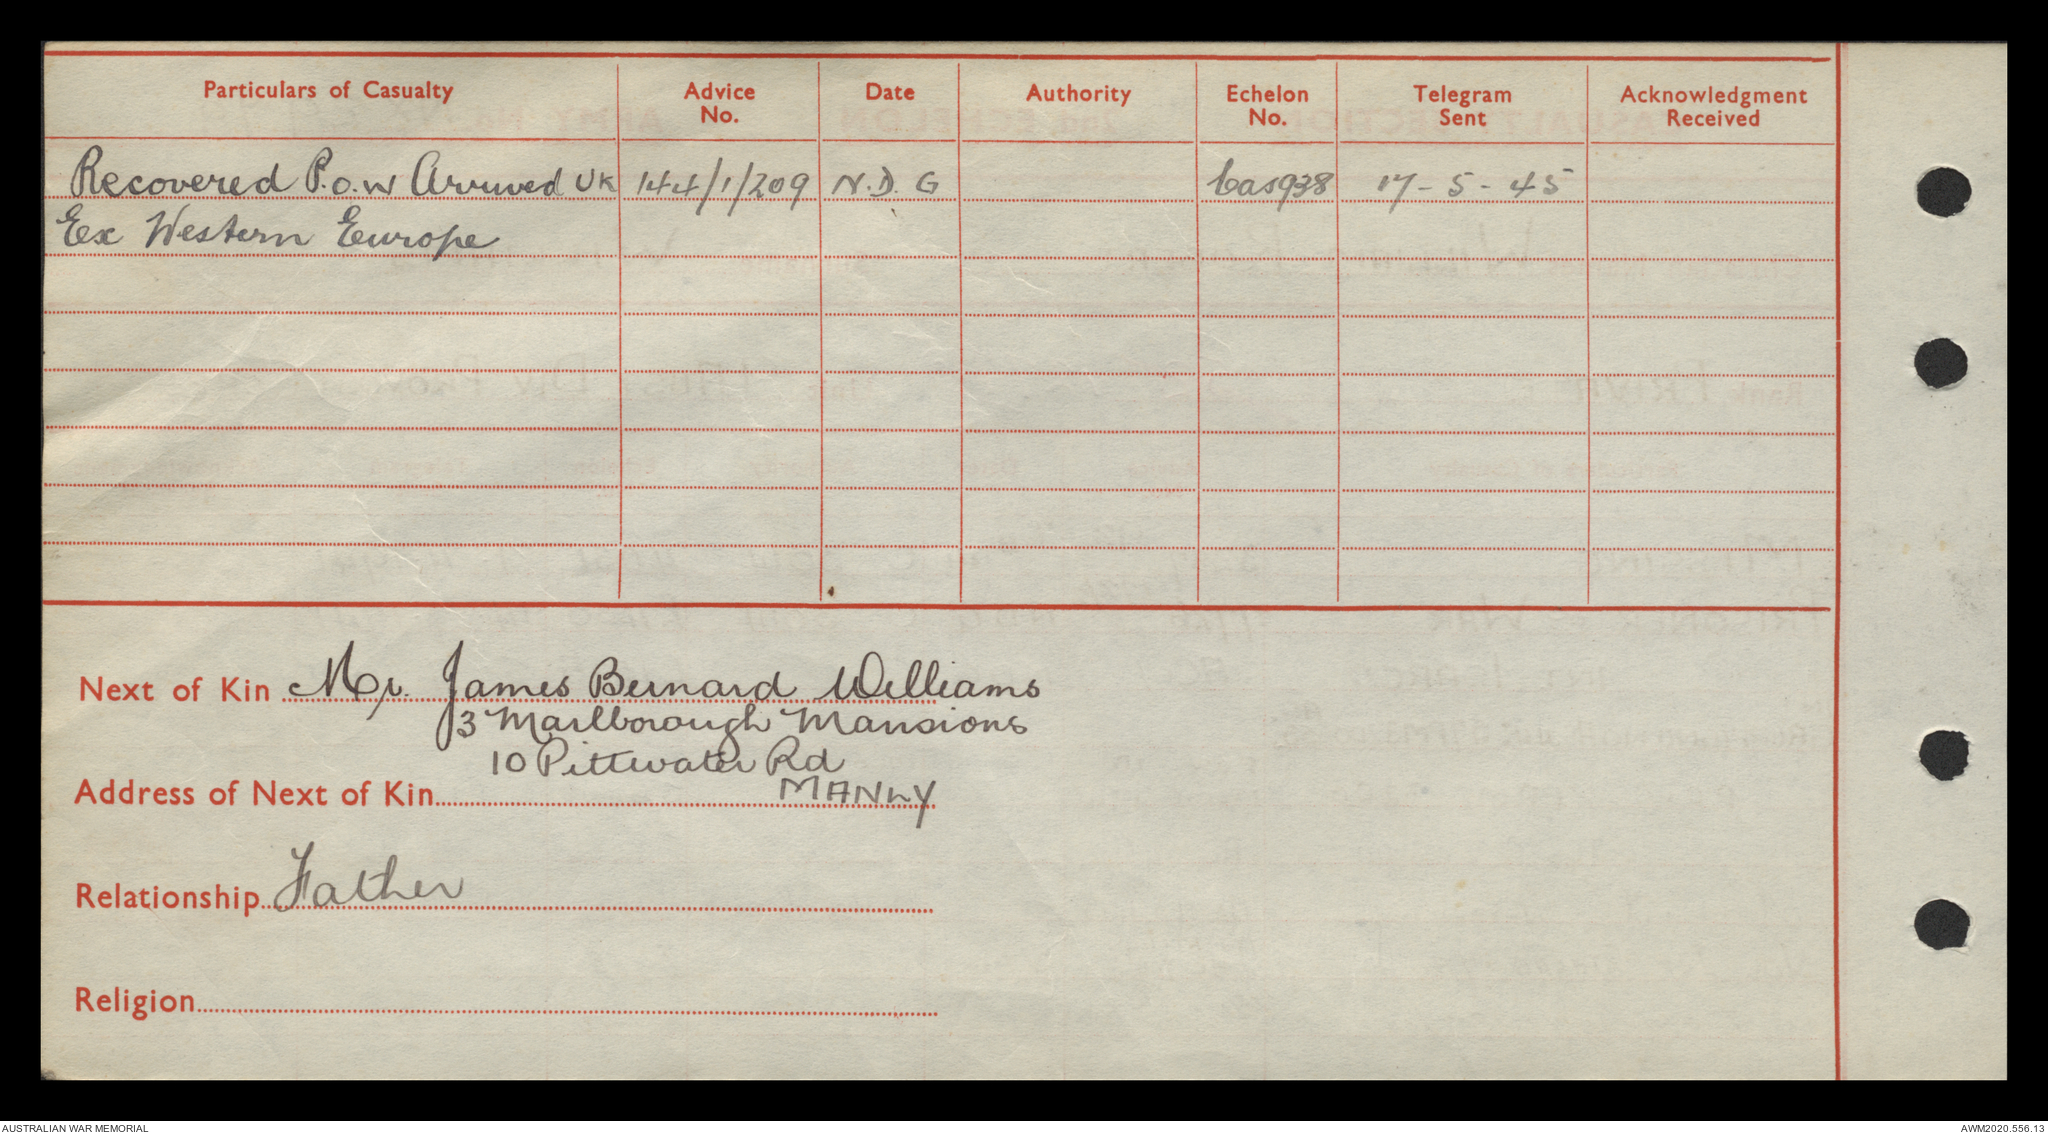 Particulars of Casualty Advice No. Date Authority Echelon No. Telegram Sent Acknowledgment Received
Recovered P.o.w Arrived UK 144/1/209 N.D.G Cas938 17-5-45
Ex Western Europe
Next of Kin Mr. James Bernard Williams
3 Marlborough Mansions
10 Pittwater Rd
Address of Next of Kin MANLY
Relationship Father
Religion
AUSTRALIAN WAR MEMORIAL AWM2020.556.13